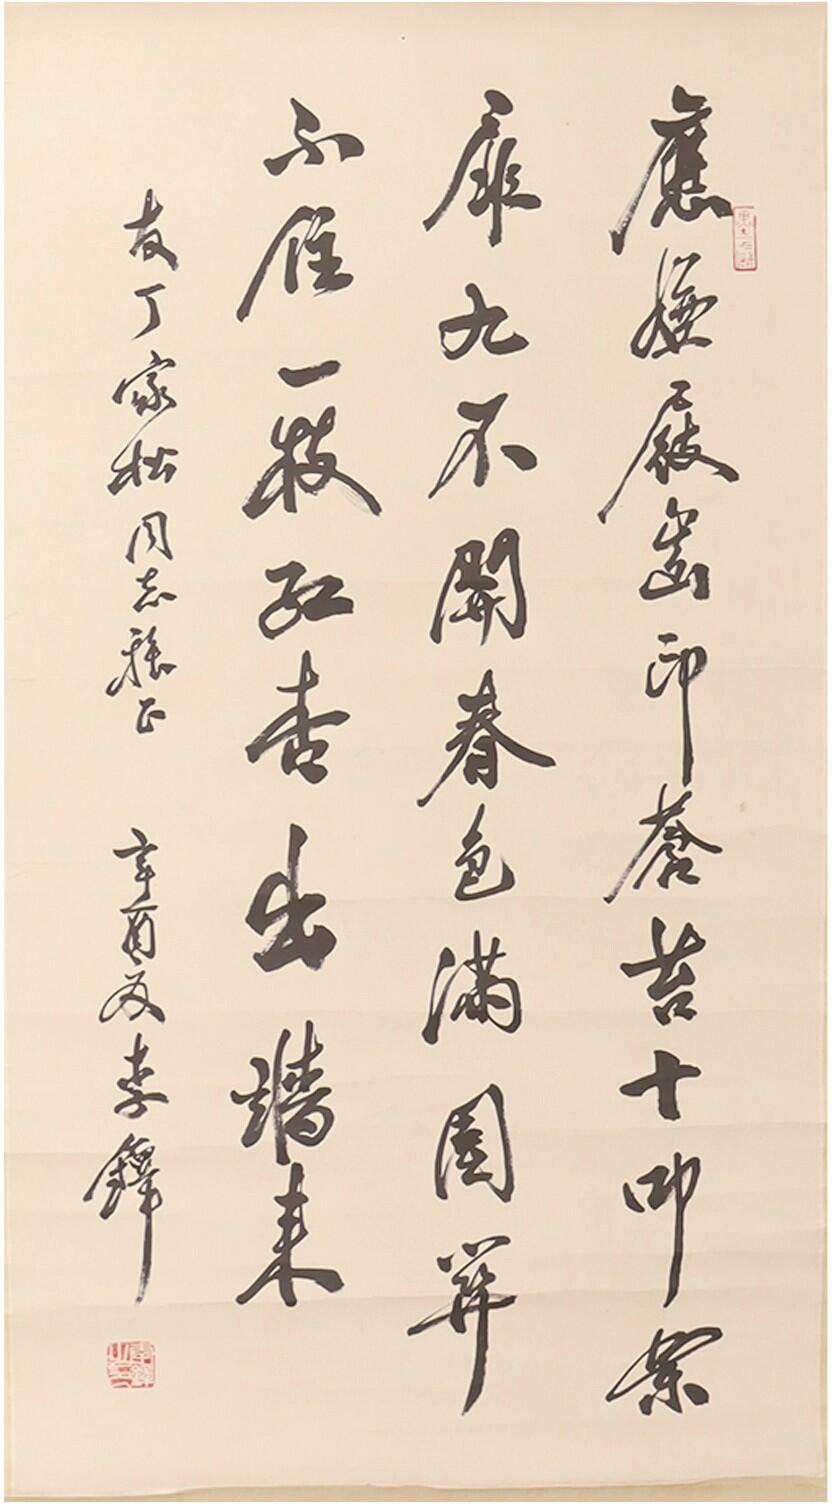 應嫌屐齒印蒼苔十叩柴
扉九不開春色滿園關
不住一枝紅杏出墻來
友丁家松同志雅正 辛酉夏李鐸